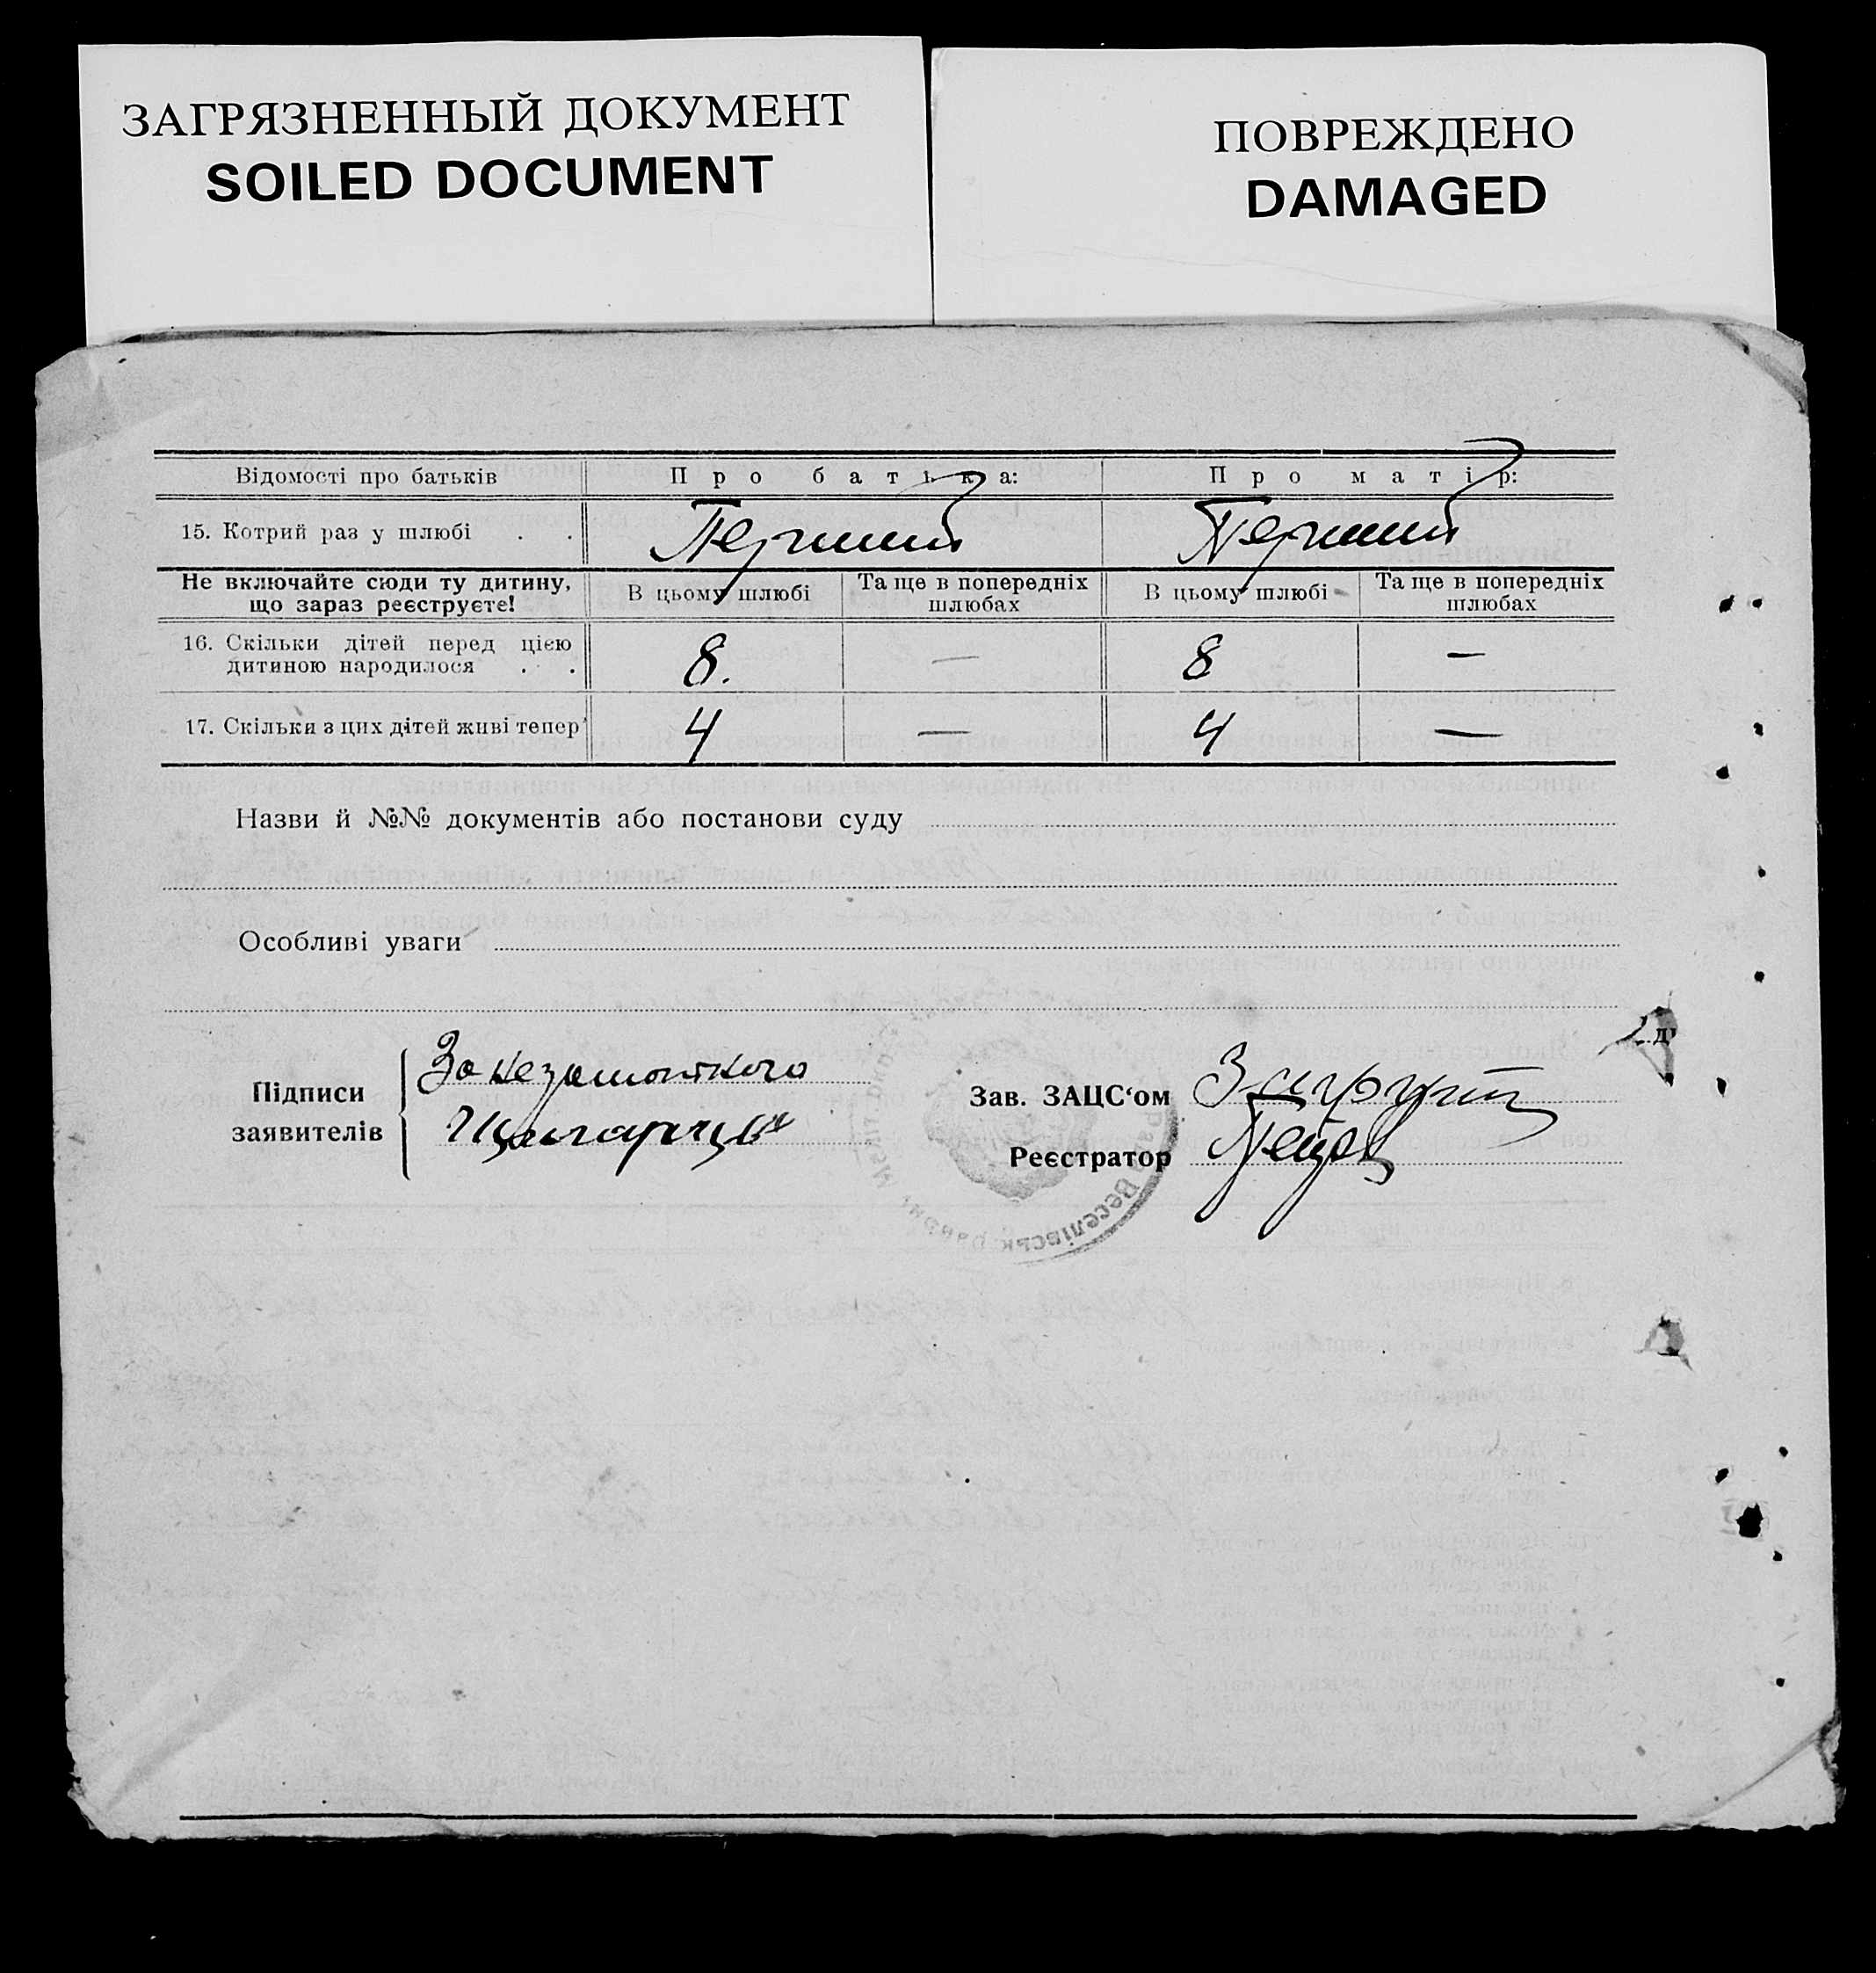 ЗАГРЯЗНЕННЫЙ ДОКУМЕНТ
SOILED DOCUMENT
ПОВРЕЖДЕНО
DAMAGED
Відомості про батьків Про батька: Про матір:
15. Котрий раз у шлюбі . . Перший Перший
Не включайте сюди ту дитину, що зараз реєструєте! В цьому шлюбі Та ще в попередніх шлюбах В цьому шлюбі Та ще в попередніх шлюбах
16. Скільки дітей перед цією
дитиною народилося . . 8. — 8 —
17. Скільки з цих дітей живі тепер 4 — 4 —
Назви й №№ документів або постанови суду
Особливі уваги
Підписи
заявителів
За
Зав. ЗАЦС‘ом
Реєстратор
Веселівськ